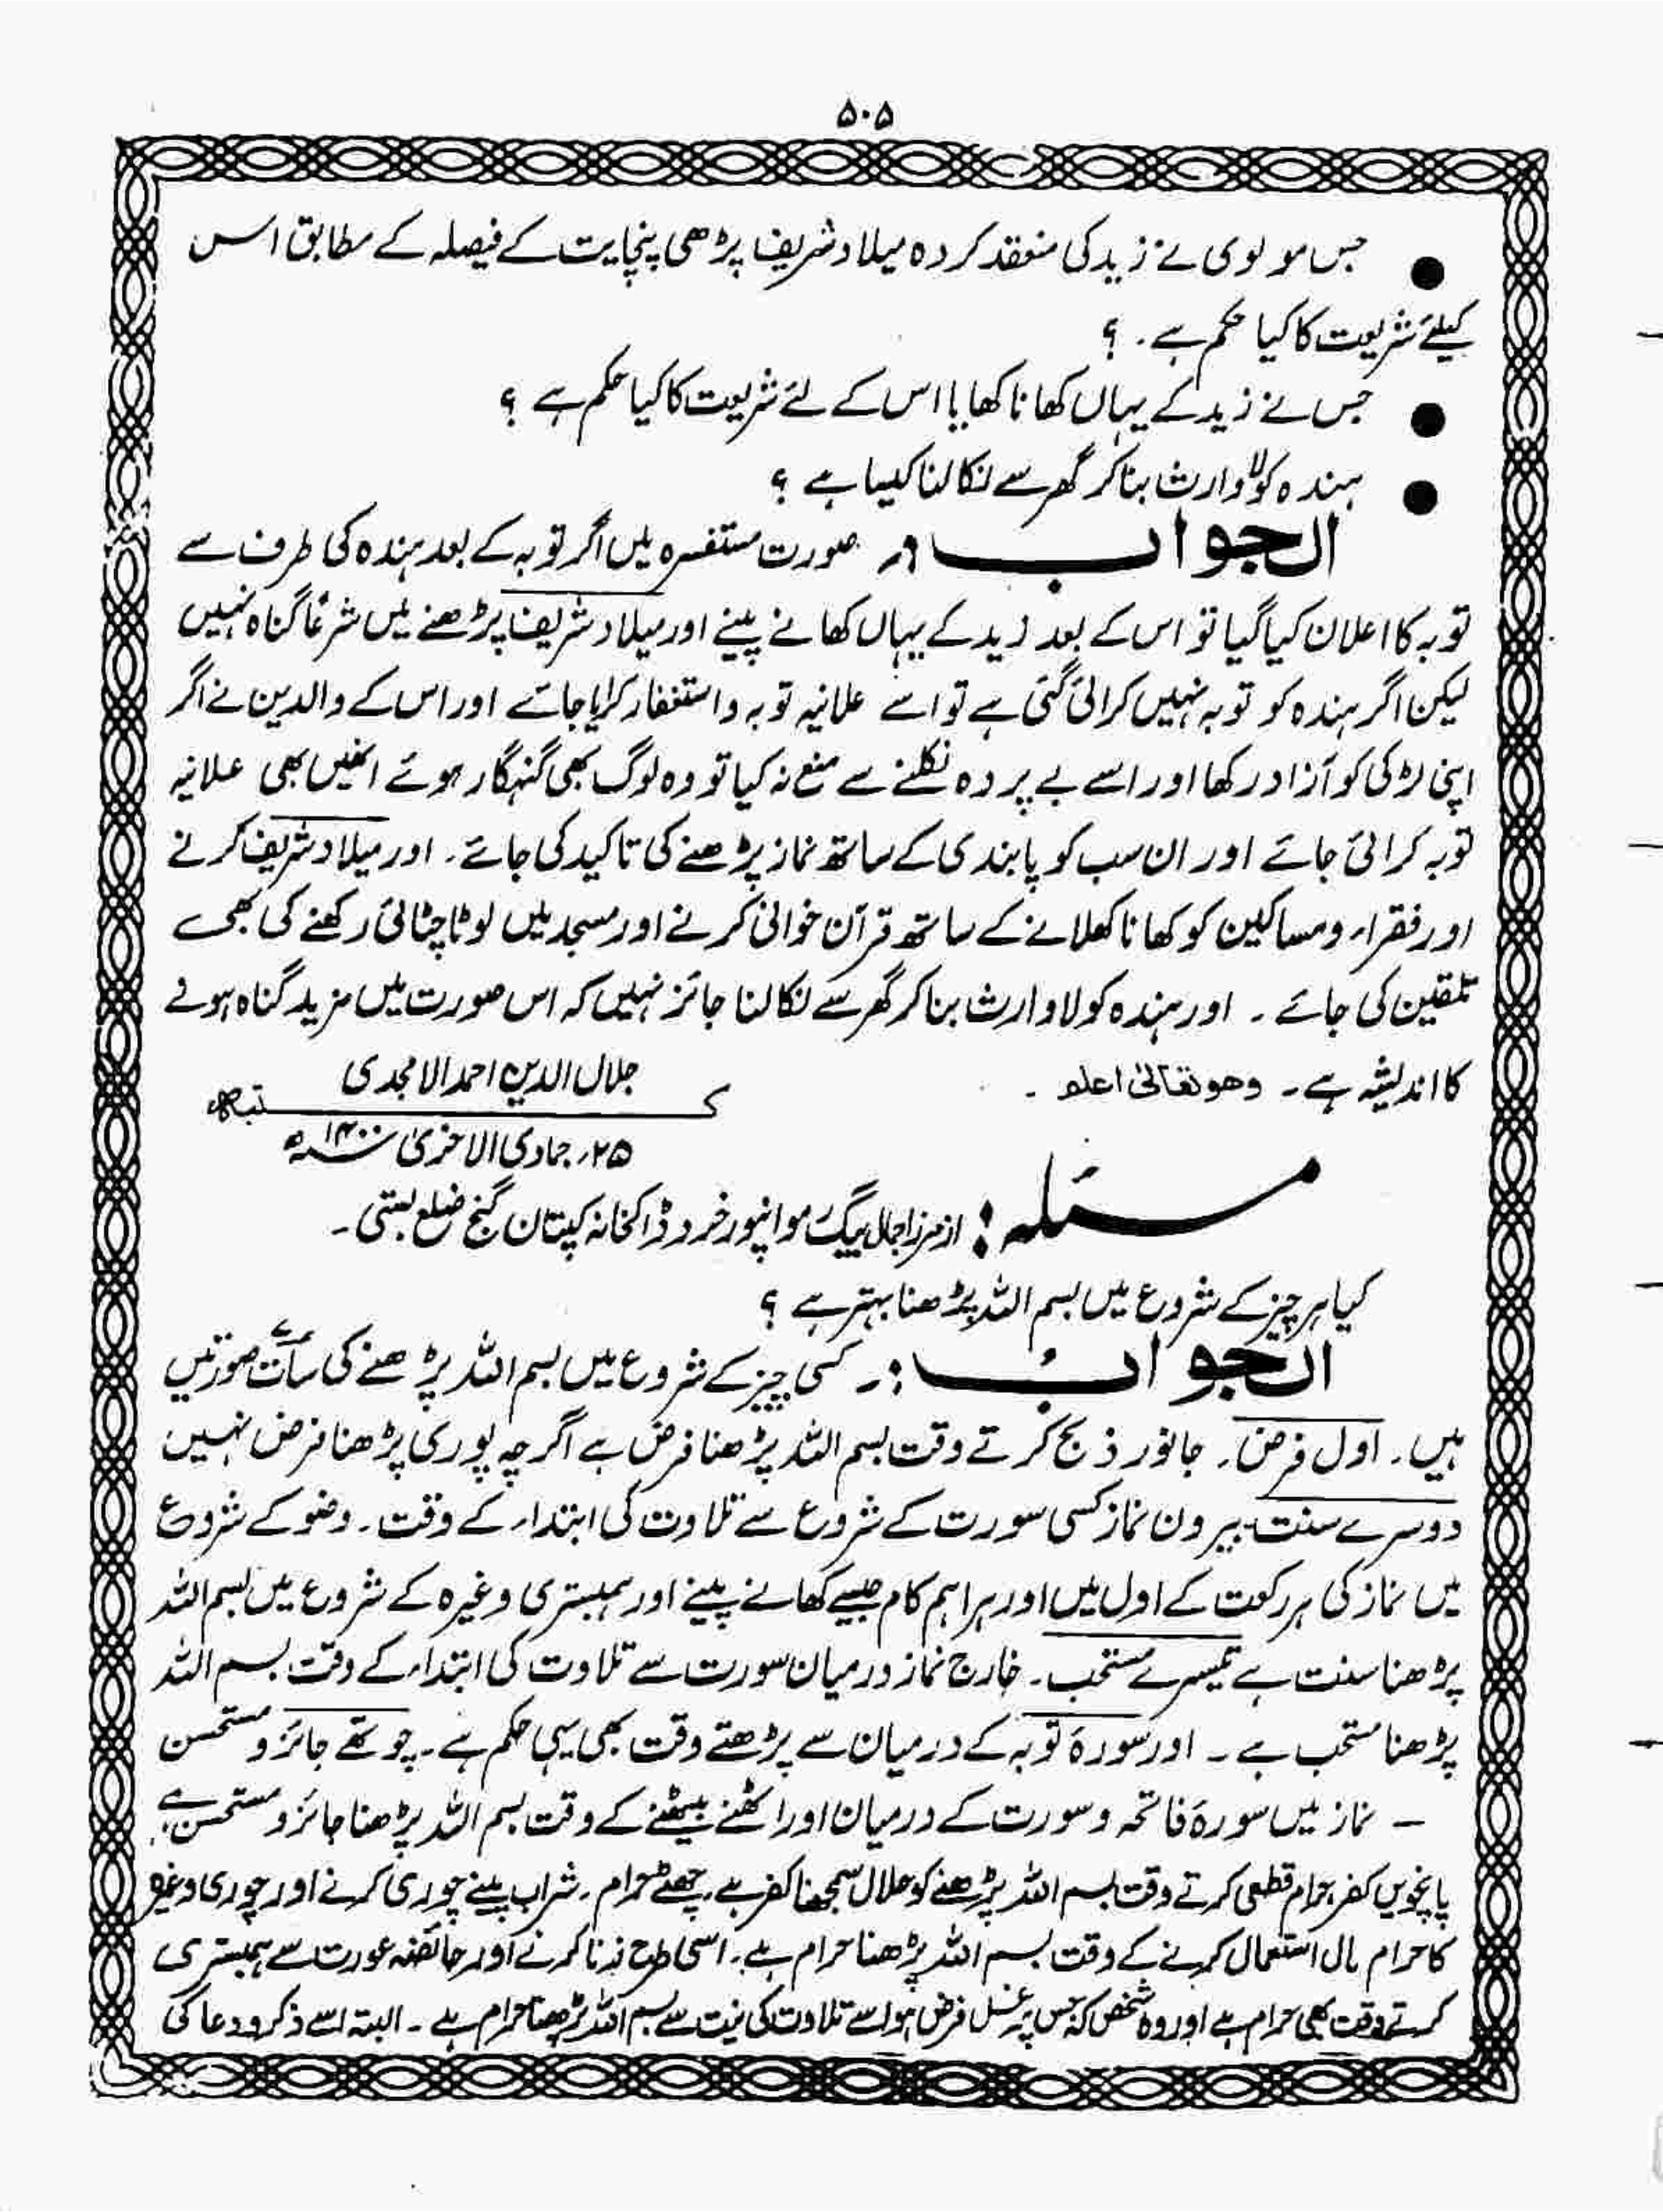 ۵۰۵
● جس مولوی نے زید کی منعقد کردہ میلاد شریف پڑھی پنچایت کے فیصلہ کے مطابق اس
کیلئے شریعت کا کیا حکم ہے ۔ ؟
● جس نے زید کے یہاں کھانا کھایا اس کے لئے شریعت کا کیا حکم ہے ؟
● ہندہ کو لاوارث بنا کر گھر سے نکالنا کیسا ہے ؟
الجواب :۔ صورت مستفسرہ میں اگر توبہ کے بعد ہندہ کی طرف سے
توبہ کا اعلان کیا گیا تو اس کے بعد زید کے یہاں کھانے پینے اور میلاد شریف پڑھنے میں شرعًا گناہ نہیں
لیکن اگر ہندہ کو توبہ نہیں کرائی گئی ہے تو اسے علانیہ توبہ و استغفار کرایا جائے اور اس کے والدین نے اگر
اپنی لڑکی کو آزاد رکھا اور اسے بے پردہ نکلنے سے منع نہ کیا تو وہ لوگ بھی گنہگار ہوئے انھیں بھی علانیہ
توبہ کرائی جائے اور ان سب کو پابندی کے ساتھ نماز پڑھنے کی تاکید کی جائے ۔ اور میلاد شریف کرنے
اور فقراء و مساکین کو کھانا کھلانے کے ساتھ قرآن خوانی کرنے اور مسجد میں لوٹا چٹائی رکھنے کی بھی
تلقین کی جائے ۔ اور ہندہ کو لاوارث بنا کر گھر سے نکالنا جائز نہیں کہ اس صورت میں مزید گناہ ہونے
کا اندیشہ ہے ۔ وھو تعالیٰ اعلم ۔
جلال الدین احمد الامجدی
کتبہ
۲۵؍ جمادی الاخریٰ ۱۴۰۰ھ
مسئلہ : از مرزا جمال بیگ موانپور خرد ڈاکخانہ کپتان گنج ضلع بستی ۔
کیا ہر چیز کے شروع میں بسم اللہ پڑھنا بہتر ہے ؟
الجواب :۔ کسی چیز کے شروع میں بسم اللہ پڑھنے کی سات صورتیں
ہیں ۔ اول فرض ۔ جانور ذبح کرتے وقت بسم اللہ پڑھنا فرض ہے اگرچہ پوری پڑھنا فرض نہیں
دوسرے سنت بیرون نماز کسی سورت کے شروع سے تلاوت کی ابتداء کے وقت ۔ وضو کے شروع
میں نماز کی ہر رکعت کے اول میں اور ہر اہم کام جیسے کھانے پینے اور ہمبستری وغیرہ کے شروع میں بسم اللہ
پڑھنا سنت ہے تیسرے مستحب ۔ خارج نماز درمیان سورت سے تلاوت کی ابتداء کے وقت بسم اللہ
پڑھنا مستحب ہے ۔ اور سورۂ توبہ کے درمیان سے پڑھتے وقت بھی یہی حکم ہے ۔ چوتھے جائز و مستحسن
۔ نماز میں سورۂ فاتحہ و سورت کے درمیان اور اٹھنے بیٹھنے کے وقت بسم اللہ پڑھنا جائز و مستحسن ہے
پانچویں کفر حرام قطعی کرتے وقت بسم اللہ پڑھنے کو حلال سمجھنا کفر ہے ۔ چھٹے حرام ۔ شراب پینے چوری کرنے اور چوری وغیرہ
کا حرام مال استعمال کرنے کے وقت بسم اللہ پڑھنا حرام ہے ۔ اسی طرح زنا کرنے اور حائضہ عورت سے ہمبستری
کرتے وقت بھی حرام ہے اور وہ شخص کہ جس پر غسل فرض ہو اسے تلاوت کی نیت سے بسم اللہ پڑھنا حرام ہے ۔ البتہ اسے ذکر و دعا کی